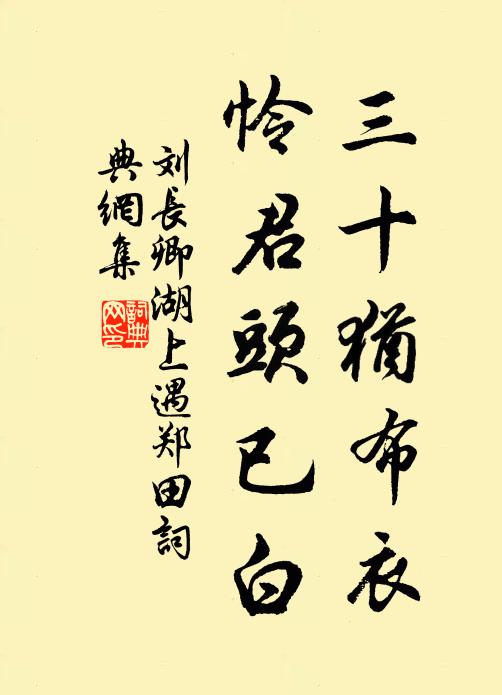 三十犹布衣
怜君頭已白
刘長卿湖上遇郑田詞
典網集
詞典
网印